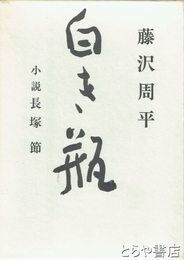 藤沢周平
白き瓶
小説 長塚節
とらや書店